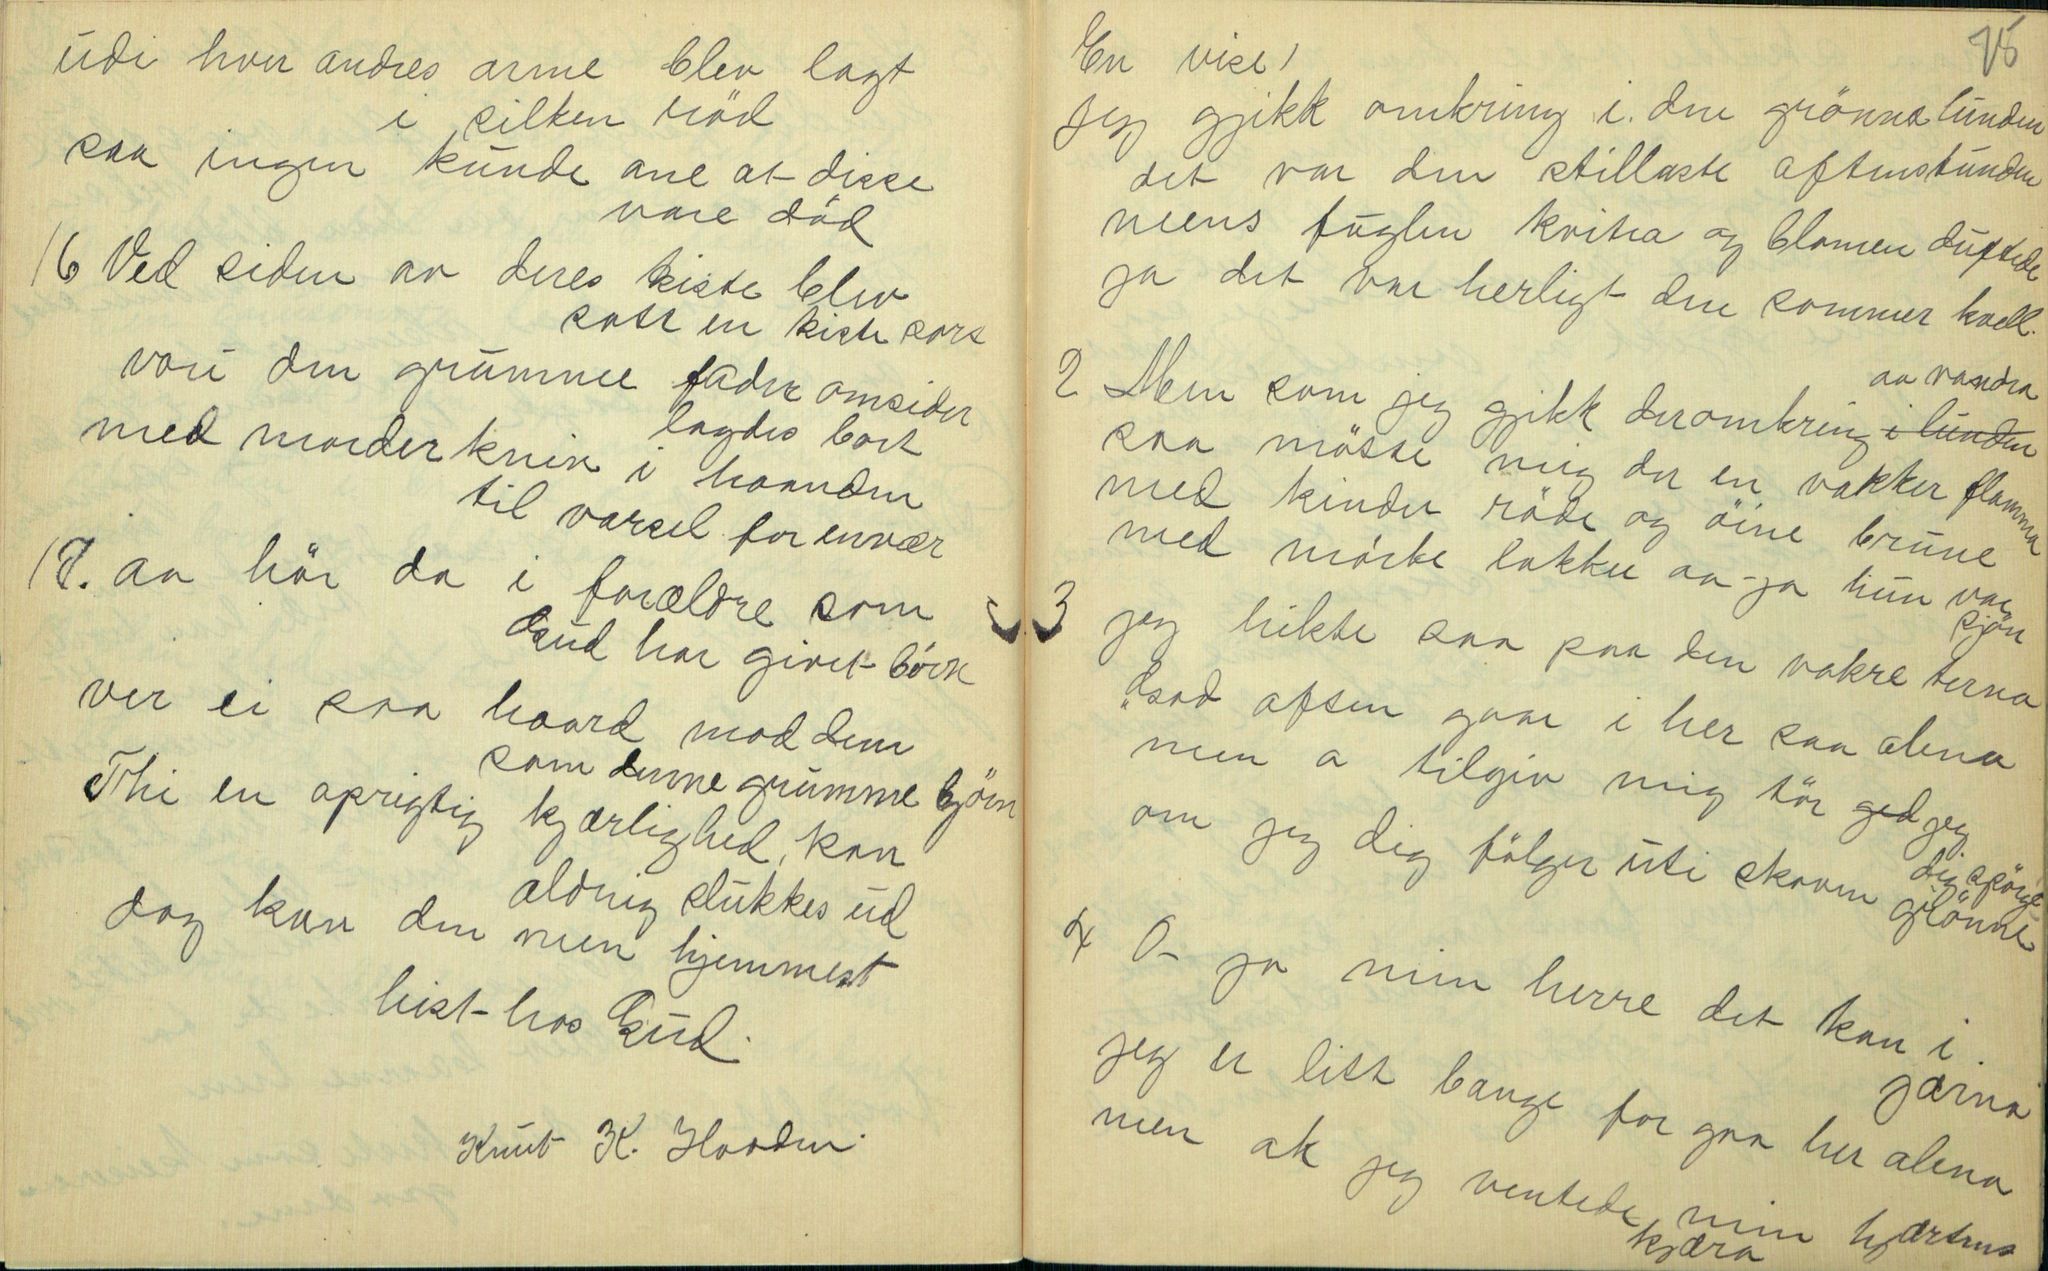 udi hver andres arme blev lagt
i silken röd
saa ingen kunde ane at disse
vare död
16 Ved siden av deres kiste blev
satt en kiste sort
vori den grumme fader omsider
lagdes bort
med morder kniv i haanden
til varsel for envær
18. aa hör da i forældre som
Gud har givet börn
ver ei saa haard mod dem
som denne grumme björn
Thi en oprigtig kjærlighed, kan
aldrig slukkes ud
dog kan den men hjemmest
hist hos Gud.
Knut K. Haaden.
75
En vise!
Jeg gjikk omkring i den grönna lunden
det var den stillaste aftenstunden
mens fuglen kvitra og blomen duftede
ja det var herligt den sommer kvell.
2 Men som jeg gjikk deromkring i lunden aa vandra
saa mötte mig der en vakker flamma
med kinder röde og öine brune
med mörke lokker aa-ja hun var
sjön
3 jeg hikte saa paa den vakre terna
"Gsod aften gaar i her saa alena
men a tilgiv mig tör ged jeg
dig spörge
om jeg dig fölger uti skoven grönne
4 O- ja min herre det kan i
jærna
jeg er litt bange for gaa her alena
men ak jeg ventede min hjærtens
kjæra